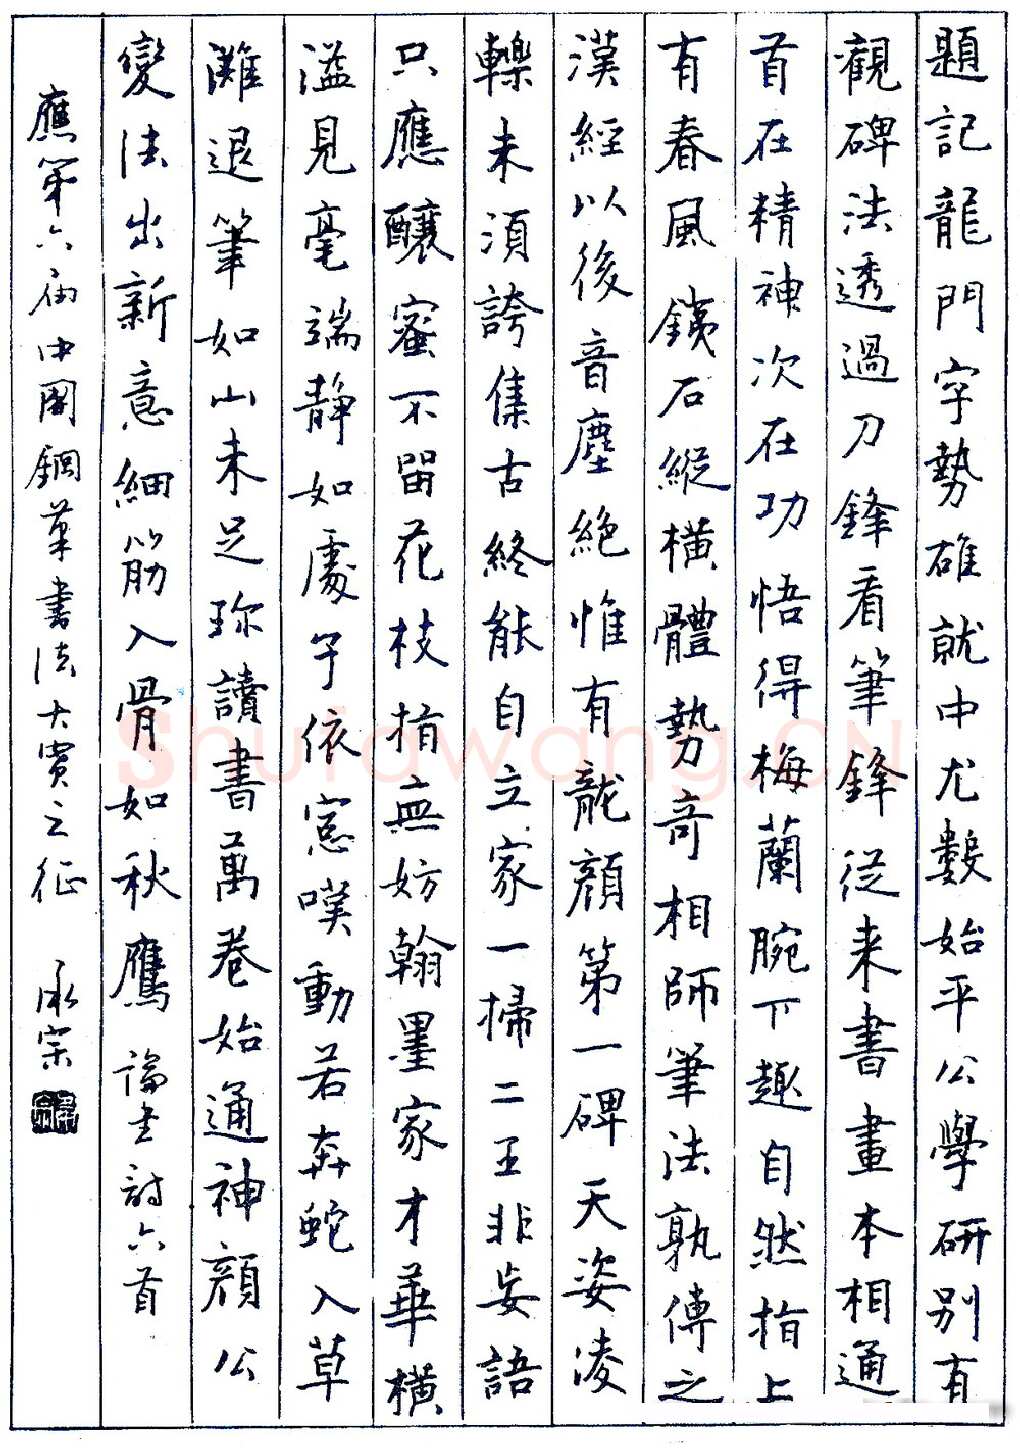 題記龍門字勢雄就中尤數始平公學研別有
觀碑法透過刀鋒看筆鋒從来書畫本相通
首在精神次在功悟得梅蘭腕下趣自然指上
有春風鐵石縱橫體勢奇相師筆法孰傳之
漢經以後音塵絕惟有龍顏第一碑天姿凌
轢未須誇集古終能自立家一掃二王非妄語
只應釀蜜不留花枝指無妨翰墨家才華橫
溢見毫端静如處子依窓嘆動若奔蛇入草
灘退筆如山未足珍讀書萬卷始通神顏公
變法出新意細筋入骨如秋鷹論書詩六首
應第六届中國鋼筆書法大賽之征 承宗
Shufawang.CN